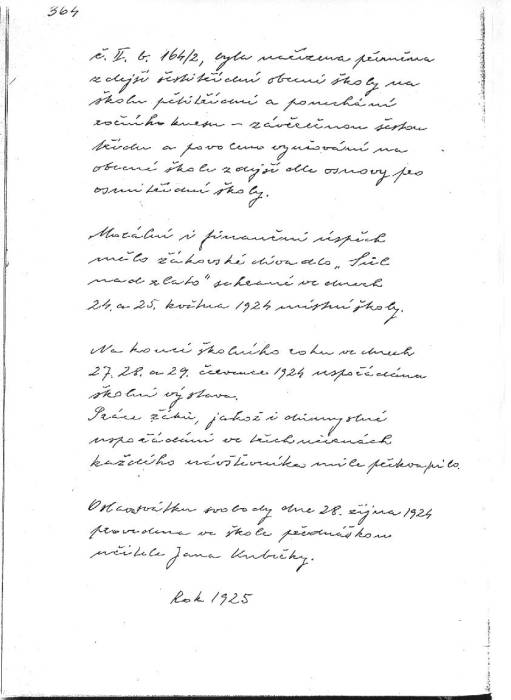 364
č. II. b. 164/2, byla nařízena přeměna
zdejší šestitřídní obecní školy na
školu pětitřídní a ponechání
ročního kursu – závěrečnou šestou
třídu a povoleno vyučování na
obecné škole zdejší dle osnovy pro
osmitřídní školy.
Morální i finanční úspěch
mělo žákovské divadlo „Sůl
nad zlato" sehrané ve dnech
24. a 25. května 1924 místní školy.
Na konci školního roku ve dnech
27. 28. a 29. července 1924 uspořádána
školní výstava.
Práce žáků, jakož i důmyslné
uspořádání ve třech učebnách
každého návštěvníka mile překvapilo.
Oslava svátku svobody dne 28. října 1924
provedena ve škole přednáškou
učitele Jana Kubičky.
Rok 1925